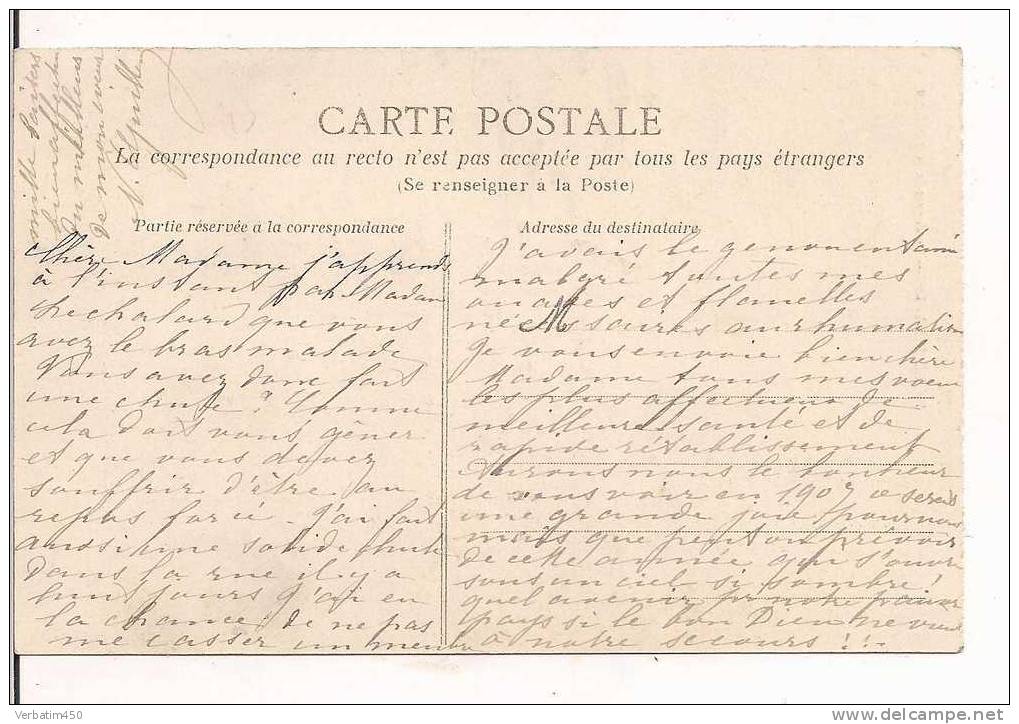 CARTE POSTALE
La correspondance au recto n'est pas acceptée par tous les pays étrangers
(Se renseigner à la Poste)
Partie réservée à la correspondance
Chère Madame j'apprends
à l'instant par Madam
Lechalard que vous
avez le bras malade
Vous avez donc fait
une chute? Comme
cela doit vous gêner
et que vous devez
souffrir d'être au
repos forcé. J'ai fait
aussi une solide chute
dans la rue il y a
huit jours j'ai eu
la chance de ne pas
me casser un membre
Adresse du destinataire
J'avais le genou entamé
malgré toutes mes
ouates et flanelles
nécessaires aux rhumatismes
Je vous envoie bien chère
Madame tous mes voeux
les plus affectueux de
meilleure santé et de
rapide rétablissement
Aurons nous le bonheur
de vous voir en 1907 ce serait
une grande joie pour nous
mais que peut on prévoir
de cette année qui s'ouvre
sous un ciel si sombre!
quel avenir pr notre pauvre
pays si le bon Dieu ne vient
à notre secours!!
mille baisers
bien affectueux
de mon
Verbatim450
www.delcampe.net